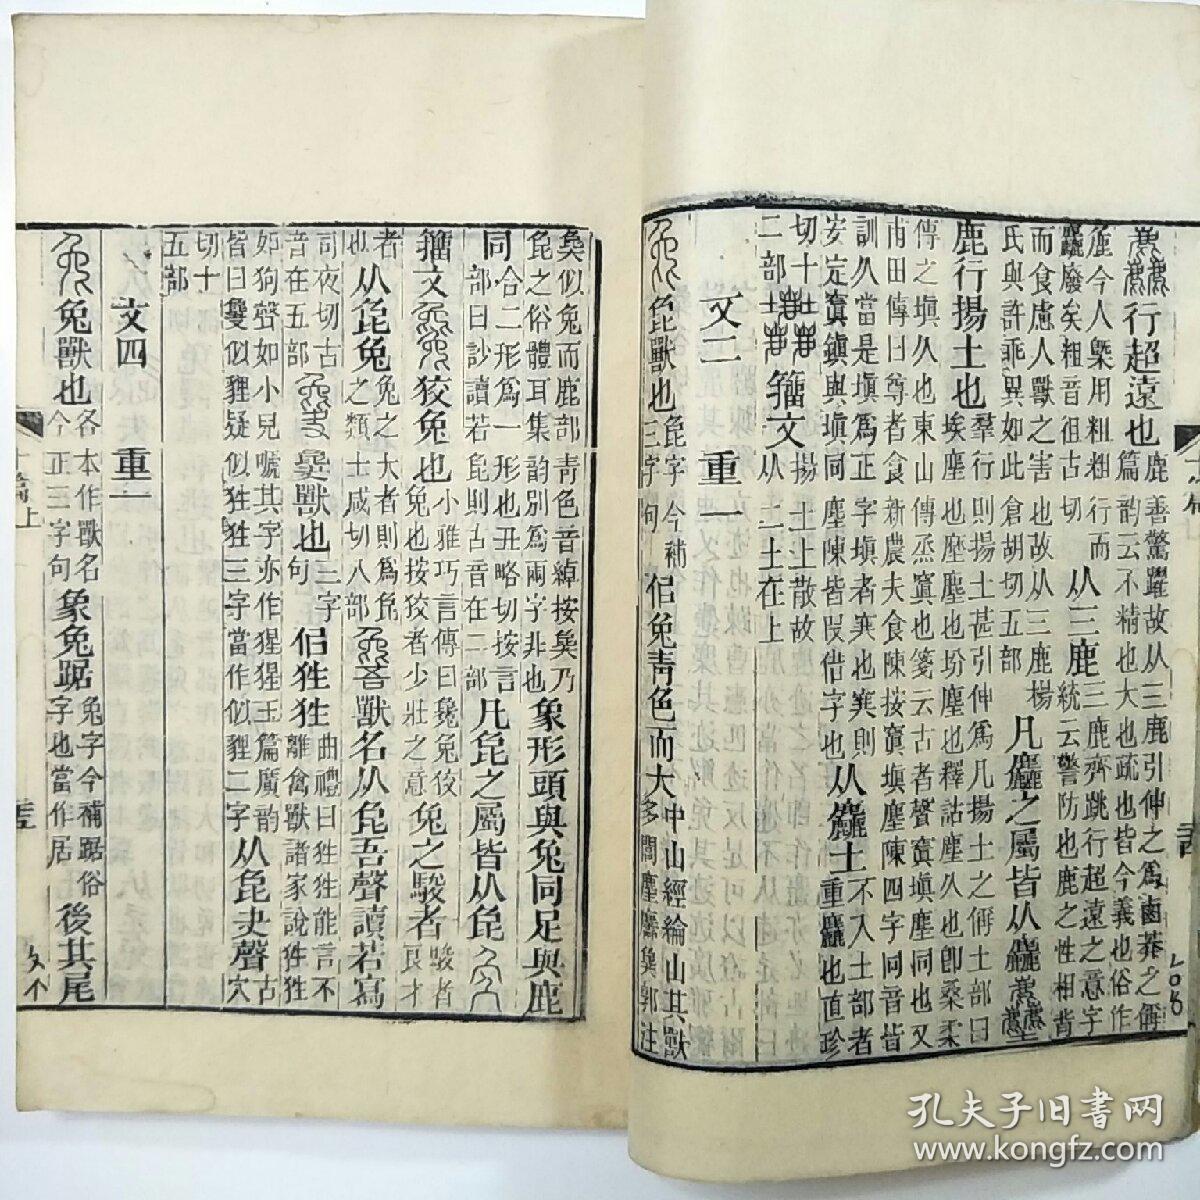 行超遠也鹿善驚躍故从三鹿引伸之爲鹵莽之偁
篇韵云不精也大也疏也皆今義也俗作
麤今人槩用粗粗行而
麤廢矣粗音徂古切从三鹿三鹿齊跳行超遠之意字
統云警防也鹿之性相背
而食慮人獸之害也故从三鹿楊
氏與許乖異如此倉胡切五部凡麤之屬皆从麤
鹿行揚土也羣行則揚土甚引伸爲凡揚土之偁土部曰
埃塵也坋塵也釋詁塵久也卽桑柔
傳之塡久也東山傳烝窴也箋云古者聲窴塡塵同也又
甫田傳曰尊者食新農夫食陳按窴塡塵陳四字同音皆
訓久當是塡爲正字塡者窴也窴則
安定窴鎭與塡同塵陳皆叚借字也从麤土不入土部者
重麤也直珍
切十
二部籒文揚土上散故
从二土在上
文二 重一
㲋獸也㲋字今補
三字句佀兔靑色而大中山經綸山其獸
多閭麈麢㚟郭注
㚟似兔而鹿脚靑色音綽按㚟乃
㲋之俗體耳集韵別爲兩字非也象形頭與兔同足與鹿
同合二形爲一形也丑略切按言
部曰訬讀若㲋則古音在二部凡㲋之屬皆从㲋
籒文狡兔也小雅巧言傳曰毚兔狡
兔也按狡者少壯之意兔之駿者駿者良才
者
也从㲋兔兔之大者則爲㲋
之類士咸切八部獸名从㲋吾聲讀若寫
司夜切古
音在五部獸也三字
句佀狌狌曲禮曰狌狌能言不
離禽獸諸家說狌狌
如狗聲如小兒嗁其字亦作猩猩玉篇廣韵
皆曰似貍疑似狌狌三字當作似貍二字从㲋夬聲古
穴
切十
五部
文四 重一
兔獸也各本作獸名
今正三字句象兔踞兔字今補踞俗
字也當作居後其尾
十篇上
孔夫子旧书网
www.kongfz.com